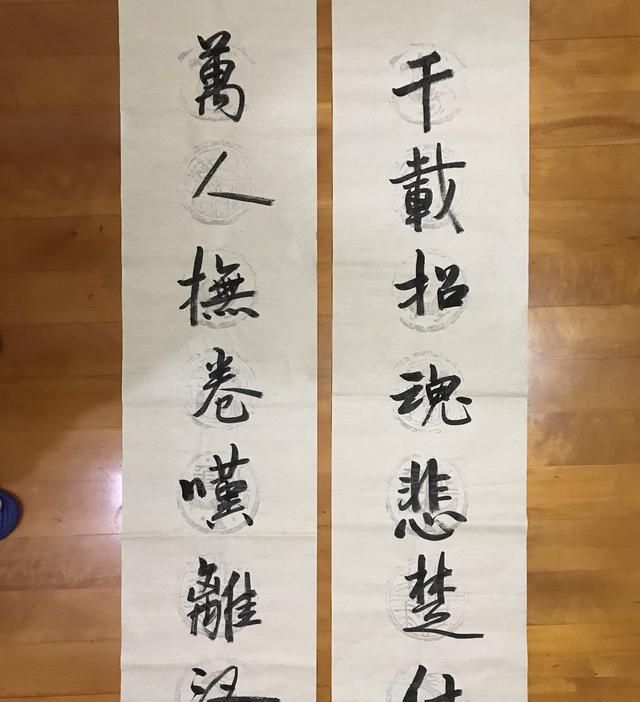 千載招魂悲楚
萬人撫卷嘆離